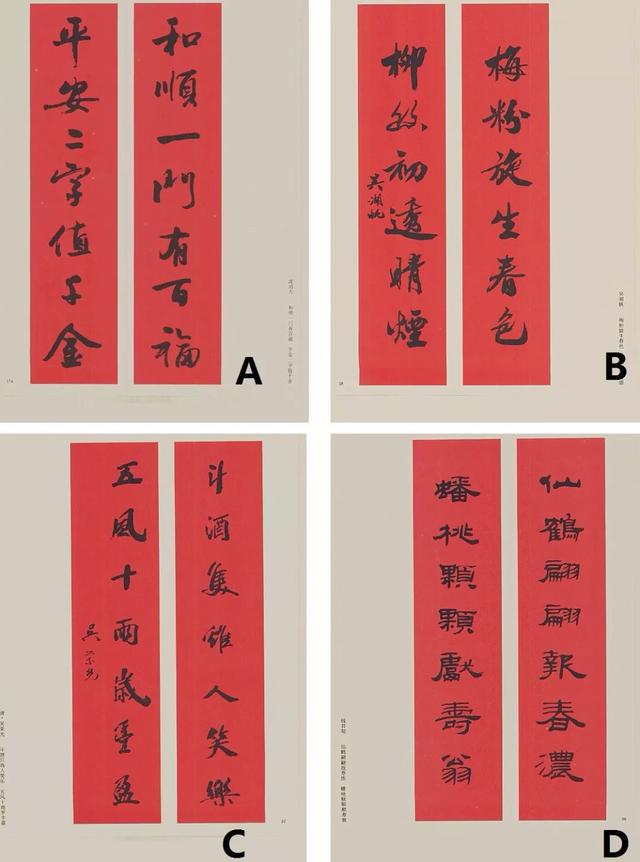 和順一門有百福
平安二字值千金
A
梅粉旋生春色
柳絲初透晴煙
吳湖帆
B
斗酒隻雞人笑樂
五風十雨歲豐盈
吳榮光
C
仙鶴翩翩報春濃
蟠桃顆顆獻壽翁
D